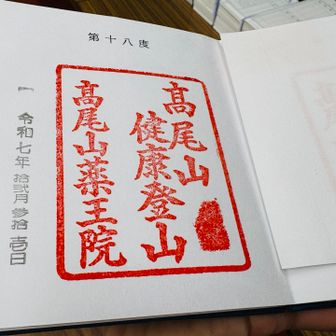 第十八度
髙尾山
健康登山
髙尾山薬王院
令和七年 拾弐月 参拾壱日